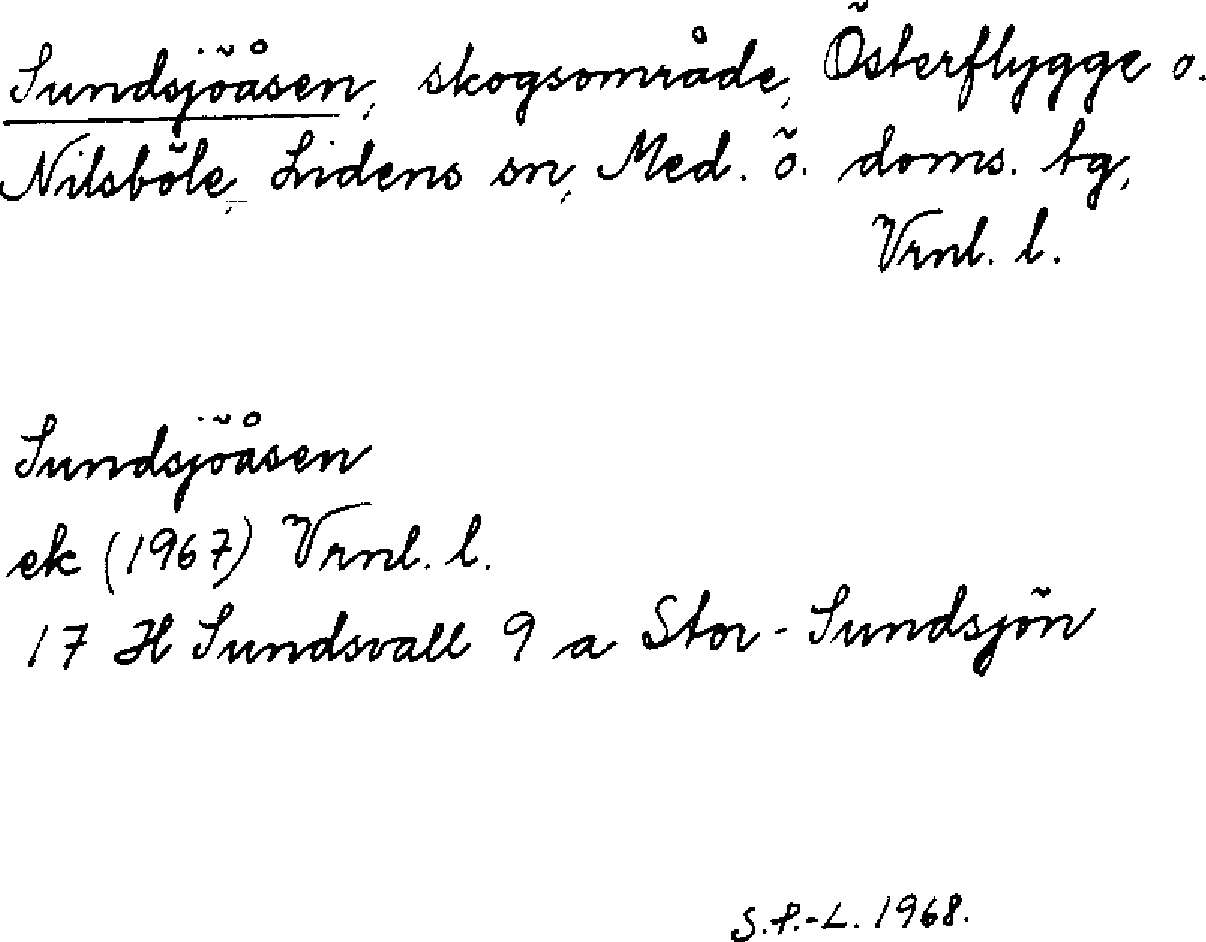 Sundsjöåsen, skogsområde, Österflygge o.
Nilsböle, Lidens sn, Med. ö. doms. tg,
Vrnl. l.
Sundsjöåsen
ek (1967) Vrnl. l.
17 H Sundsvall 9 a Stor-Sundsjön
S.P.-L. 1968.